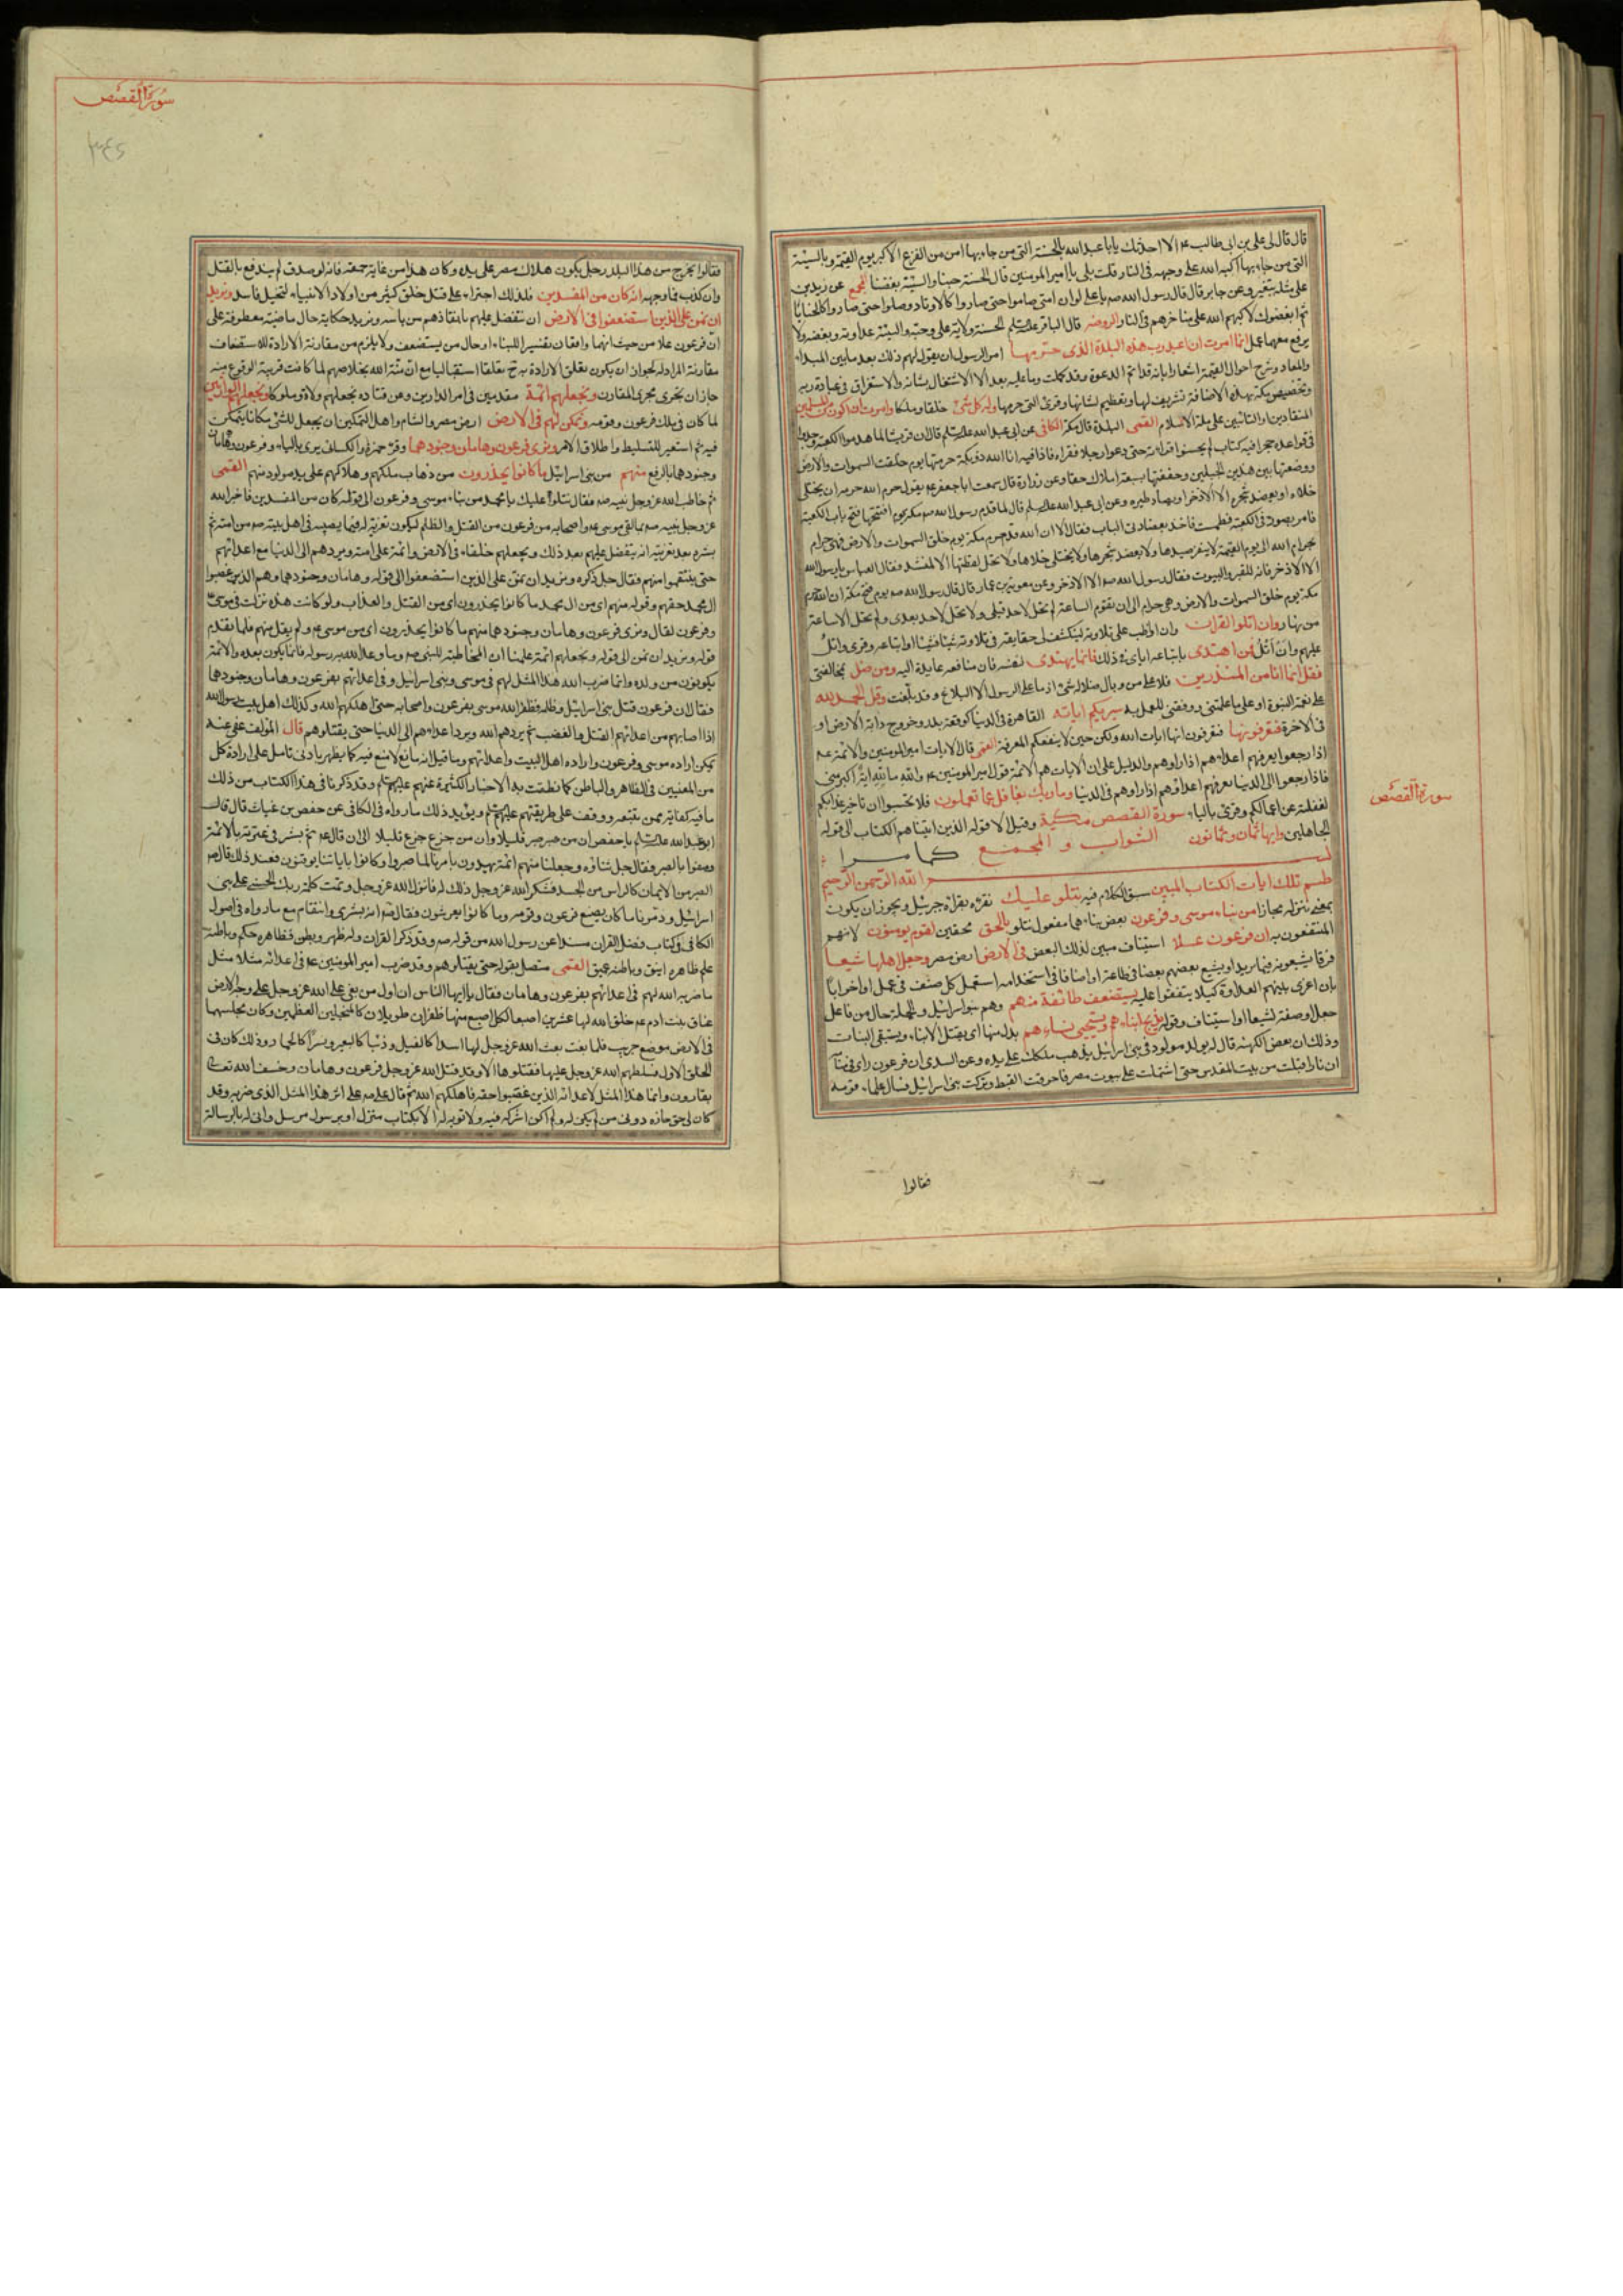 قال قال لى على بن ابى طالب عم الا احدثك يابا عبد الله بالحسنة التى من جاء بها امن من الفزع الاكبر يوم القيمة وبالسيئة
التى من جاء بها اكبه الله على وجهه فى النار قلت بلى يا امير المومنين قال الحسنة حبنا والسيئة بغضنا المجمع عن زيد بن
على مثله بتغير وعن جابر قال قال رسول الله صم يا على لو ان امتى صاموا حتى صاروا كالاوتاد وصلوا حتى صاروا كالحنايا
ثم ابغضوك لاكبهم الله على مناخرهم فى النار الروضه قال الباقر الحسنة ولاية على وحبه والسيئة عداوته وبغضه ولا
يرفع معهما عمل انما امرت ان اعبد رب هذه البلدة الذى حرمها امر الرسول ان يقول لهم ذلك بعد ما بين المبداء
والمعاد وشرح احوال القيمة اشعارا بانه قد اتم الدعوة وقد كملت وما عليه بعد الا الاشتغال بشانه والاستغراق فى عبادة ربه
وتخصيص مكة بهذه الاضافة تشريف لها وتعظيم لشانها وقرئ التى حرمها وله كل شئ خلقا وملكا وامرت ان اكون من المسلمين
المنقادين او الثابتين على ملة الاسلام القمى البلدة قال مكة الكافى عن ابى عبد الله قال ان قريشا لما هدموا الكعبة وجدوا
فى قواعده حجرا فيه كتاب لم يحسنوا قراءته حتى دعوا رجلا فقراه فاذا فيه انا الله ذو بكة حرمتها يوم خلقت السموات والارض
ووضعتها بين هذين الجبلين وحففتها بسبعة املاك حفا وعن زرارة قال سمعت ابا جعفر عم يقول حرم الله حرمه ان يختلى
خلاه او يعضد شجره الا الاذخر او يصاد طيره وعن ابى عبد الله قال لما قدم رسول الله صم مكة يوم افتتحها فتح باب الكعبة
فامر بصور فى الكعبة فطمست فاخذ بعضادتى الباب فقال الا ان الله قد حرم مكة يوم خلق السموات والارض فهى حرام
بحرام الله الى يوم القيمة لا ينفر صيدها ولا يعضد شجرها ولا يختلى خلاها ولا تحل لقطتها الا لمنشد فقال العباس يا رسول الله
الا الاذخر فانه للقبر والبيوت فقال رسول الله صم الا الاذخر وعن معوية بن عمار قال قال رسول الله صم يوم فتح مكة ان الله حرم
مكة يوم خلق السموات والارض وهى حرام الى ان تقوم الساعة لم تحل لاحد قبلى ولا تحل لاحد بعدى ولم تحل الا ساعة
من نهار وان اتلوا القران وان اواظب على تلاوته لينكشف لى حقايقه فى تلاوته شيئا فشيئا او اتباعه وقرئ واتل
عليهم وان اتل فمن اهتدى باتباعه اياى فى ذلك فانما يهتدى لنفسه فان منافعه عايدة اليه ومن ضل بمخالفتى
فقل انما انا من المنذرين فلا على من وبال ضلاله شئ اذ ما على الرسول الا البلاغ وقد بلغت وقل الحمد لله
على نعمة النبوة او على ما علمنى ووفقنى للعمل به سيريكم اياته القاهرة فى الدنيا كوقعة بدر وخروج دابة الارض او
فى الاخرة فتعرفونها فتعرفون انها ايات الله ولكن حين لا ينفعكم المعرفة القمى قال الايات امير المومنين والائمة عم
اذا رجعوا يعرفهم اعداءهم اذا راوهم والدليل على ان الايات هم الائمة قول امير المومنين عم والله ما لله اية اكبر منى
فاذا رجعوا الى الدنيا يعرفهم اعداؤهم اذا راوهم فى الدنيا وما ربك بغافل عما تعملون فلا تحسبوا ان تاخير عذابكم
لغفلته عن اعمالكم وقرئ بالياء سورة القصص مكية وقيل الا قوله الذين اتيناهم الكتاب الى قوله
الجاهلين وايها ثمان وثمانون الثواب و المجمع كما مر
بسم الله الرحمن الرحيم
طسم تلك ايات الكتاب المبين سبق الكلام فيه نتلو عليك نقرؤه بقراءة جبرئيل ويجوز ان يكون
بمعنى ننزله مجازا من نباء موسى وفرعون بعض نباءهما مفعول نتلو بالحق محقين لقوم يومنون لانهم
المنتفعون به ان فرعون علا استيناف مبين لذلك البعض فى الارض ارض مصر وجعل اهلها شيعا
فرقا يشيعونه فيما يريد او يشيع بعضهم بعضا فى طاعته او اصنافا فى استخدامه استعمل كل صنف فى عمل او احزابا
بان اغرى بينهم العداوة كيلا يتفقوا عليه يستضعف طائفة منهم وهم بنو اسرائيل والجملة حال من فاعل
جعل او صفة لشيعا او استيناف وقوله يذبح ابناءهم ويستحيى نساءهم بدل منها اى يقتل الابناء ويستبقى البنات
وذلك ان بعض الكهنة قال له يولد مولود فى بنى اسرائيل يذهب ملكك على يده وعن السدى ان فرعون راى فى منامه
ان نارا اقبلت من بيت المقدس حتى اشتملت على بيوت مصر فاحرقت القبط وتركت بنى اسرائيل فسال علماء قومه
فقالوا
سورة القصص
سورة القصص
٣٤٥
فقالوا يخرج من هذا البلد رجل يكون هلاك مصر على يده وكان هذا من غاية حمقه فانه لو صدق لم يندفع بالقتل
وان كذب فما وجهه انه كان من المفسدين فلذلك اجتراء على قتل خلق كثير من اولاد الانبياء لتخيل فاسد ونريد
ان نمن على الذين استضعفوا فى الارض ان نتفضل عليهم بانقاذهم من باسه ونريد حكاية حال ماضية معطوفة على
ان فرعون علا من حيث انهما واقعان تفسير اللنباء او حال من يستضعف ولا يلزم من مقارنة الارادة للاستضعاف
مقارنة المراد له لجواز ان يكون تعلق الارادة به ح تعلقا استقباليا مع ان منة الله بخلاصهم لما كانت قريبة الوقوع منه
جاز ان تجرى مجرى المقارن ونجعلهم ائمة مقدمين فى امر الدارين وعن قتادة نجعلهم ولاة وملوكا ونجعلهم الوارثين
لما كان فى ملك فرعون وقومه ونمكن لهم فى الارض ارض مصر والشام واصل التمكين ان يجعل للشئ مكانا يتمكن
فيه ثم استعير للتسليط واطلاق الامر ونرى فرعون وهامان وجنودهما وقرء حمزة والكسائى يرى بالياء وفرعون وهامان
وجنودهما بالرفع منهم من بنى اسرائيل ما كانوا يحذرون من ذهاب ملكهم وهلاكهم على يد مولود منهم القمى
ثم خاطب الله عز وجل نبيه صم فقال نتلوا عليك يا محمد من نباء موسى وفرعون الى قوله كان من المفسدين فاخبر الله
عز وجل نبيه صم بما لقى موسى عم واصحابه من فرعون من القتل والظلم ليكون تعزية له فيما يصيبه فى اهل بيته صم من امته ثم
بشره بعد تعزيته انه يتفضل عليهم بعد ذلك ويجعلهم خلفاء فى الارض وائمة على امته ويردهم الى الدنيا مع اعدائهم
حتى ينتصفوا منهم فقال جل ذكره ونريد ان نمن على الذين استضعفوا الى قوله وهامان وجنودهما وهم الذين غصبوا
ال محمد حقهم وقوله منهم اى من ال محمد ما كانوا يحذرون اى من القتل والعذاب ولو كانت هذه نزلت فى موسى
وفرعون لقال ونرى فرعون وهامان وجنودهما منهم ما كانوا يحذرون اى من موسى عم ولم يقل منهم فلما تقدم
قوله ونريد ان نمن الى قوله ونجعلهم ائمة علمنا ان المخاطبة للنبى صم وما وعد الله به رسوله فانما يكون بعده والائمة
يكونون من ولده وانما ضرب الله هذا المثل لهم فى موسى وبنى اسرائيل وفى اعدائهم بفرعون وهامان وجنودهما
فقال ان فرعون قتل بنى اسرائيل وظلم فظفر الله موسى بفرعون واصحابه حتى اهلكهم الله وكذلك اهل بيت رسول الله
اذا اصابهم من اعدائهم القتل والغضب ثم يردهم الله ويرد اعداءهم الى الدنيا حتى يقتلوهم قال المؤلف عفى عنه
يمكن اراده موسى وفرعون واراده اهل البيت واعدائهم وما قيل انه مانع لا منع فيه كما يظهر بادنى تامل على ارادة كل
من المعنيين فى الظاهر والباطن كما نطقت به الاخبار الكثيرة عنهم عليهم وقد ذكرنا فى هذا الكتاب من ذلك
ما فيه كفاية ممن تتبعه ووقفت على طريقتهم عليهم ويؤيد ذلك ما رواه فى الكافى عن حفص بن غياث قال قال
ابو عبد الله يا حفص ان من صبر صبر قليلا وان من جزع جزع قليلا الى ان قال عم ثم بشر فى عترته بالائمة
وصفوا بالصبر فقال جل ثناؤه وجعلنا منهم ائمة يهدون بامرنا لما صبروا وكانوا باياتنا يوقنون فعند ذلك قال صم
الصبر من الايمان كالراس من الجسد فشكر الله عز وجل ذلك له فانزل الله عز وجل وتمت كلمة ربك الحسنى على بنى
اسرائيل ودمرنا ما كان يصنع فرعون وقومه وما كانوا يعرشون فقال صم انه بشرى وانتقام مع ما رواه فى اصول
الكافى فى كتاب فضل القران مسندا عن رسول الله من قوله صم وقد ذكر القران وله ظهر وبطن فظاهره حكم وباطنه
علم ظاهره انيق وباطنه عميق القمى متصل بقوله حتى يقتلوهم وقد ضرب امير المومنين عم فى اعدائه مثلا مثل
ما ضربه الله لهم فى اعدائهم بفرعون وهامان فقال يا ايها الناس ان اول من بغى على الله عز وجل على وجه الارض
عناق بنت ادم عم خلق الله لها عشرين اصبعا لكل اصبع منها ظفران طويلان كالمنجلين العظيمين وكان مجلسها
فى الارض موضع جريب فلما بغت بعث الله عز وجل لها اسدا كالفيل وذئبا كالبعير ونسرا كالحمار وذلك كان فى
الخلق الاول فسلطهم الله عز وجل عليها فقتلوها الا وقد قتل الله عز وجل فرعون وهامان وخسف الله تعالى
بقارون وانما هذا المثل لاعدائه الذين غصبوا حقه فاهلكهم الله ثم قال على صم على اثر هذا المثل الذى ضربه وقد
كان لى حق حازه دونى من لم يكن له ولم اكن اشركه فيه ولا توبه له الا بكتاب منزل او برسول مرسل وانى له بالرسالة